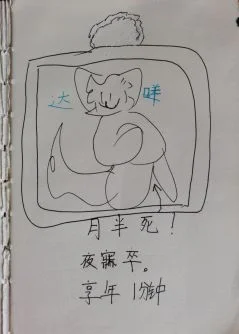 达 咩
月半死！
夜寐卒。
享年 1分钟